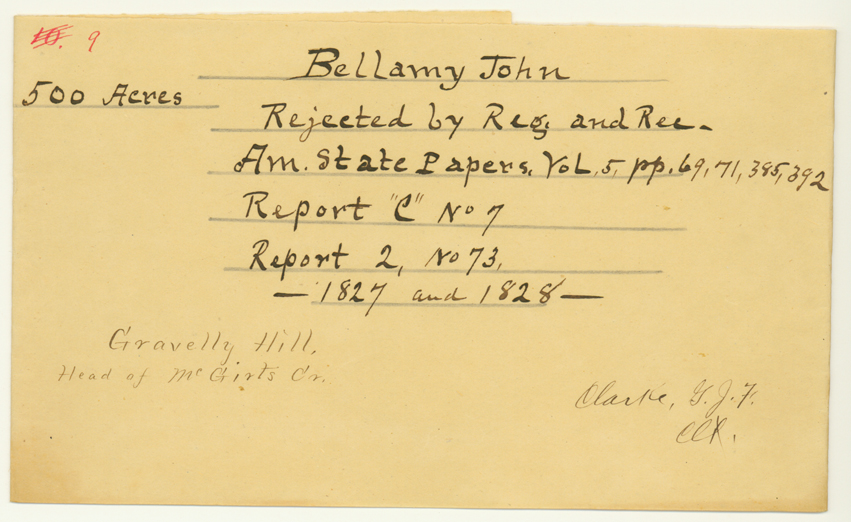 9
Bellamy John
500 Acres
Rejected by Reg. and Rec.
Am. State Papers, Vol. 5, pp. 69, 71, 385, 392
Report "C" No 7
Report 2, No 73.
— 1827 and 1828 —
Gravelly Hill,
Head of McGirts Cr.
Clarke, G.J.F.